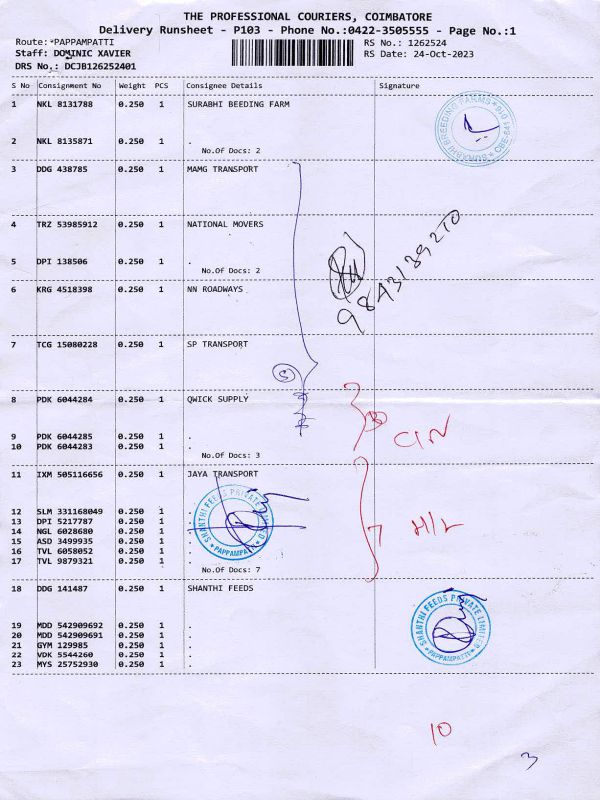 THE PROFESSIONAL COURIERS, COIMBATORE
Delivery Runsheet - P103 - Phone No.:0422-3505555 - Page No.:1
Route: *PAPPAMPATTI RS No.: 1262524
Staff: DOMINIC XAVIER RS Date: 24-Oct-2023
DRS No.: DCJB126252401
S No Consignment No Weight PCS Consignee Details Signature
1 NKL 8131788 0.250 1 SURABHI BEEDING FARM
2 NKL 8135871 0.250 1 .
No.Of Docs: 2
3 DDG 438785 0.250 1 MAMG TRANSPORT
4 TRZ 53985912 0.250 1 NATIONAL MOVERS
5 DPI 138506 0.250 1 .
No.Of Docs: 2
9843139210
6 KRG 4518398 0.250 1 NN ROADWAYS
7 TCG 15080228 0.250 1 SP TRANSPORT
5
8 PDK 6044284 0.250 1 QWICK SUPPLY
9 PDK 6044285 0.250 1 .
10 PDK 6044283 0.250 1 .
No.Of Docs: 3
11 IXM 505116656 0.250 1 JAYA TRANSPORT
SHANTHI FEEDS PRIVATE LIMITED
*PAPPAMPATTI*
12 SLM 331168049 0.250 1 .
13 DPI 5217787 0.250 1 .
14 NGL 6028680 0.250 1 .
15 ASD 3499935 0.250 1 .
16 TVL 6058052 0.250 1 .
17 TVL 9879321 0.250 1 .
No.Of Docs: 7
7
18 DDG 141487 0.250 1 SHANTHI FEEDS
SHANTHI FEEDS PRIVATE LIMITED
*PAPPAMPATTI*
19 MDD 542909692 0.250 1 .
20 MDD 542909691 0.250 1 .
21 GYM 129985 0.250 1 .
22 VDK 5544260 0.250 1 .
23 MYS 25752930 0.250 1 .
10
3